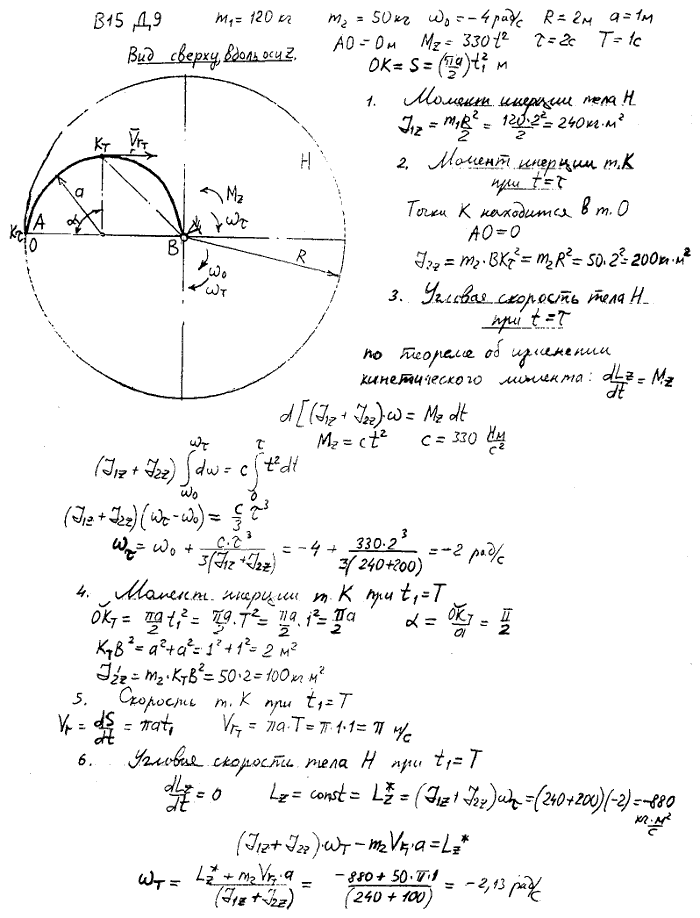 В15 Д9 m₁ = 120 кг m₂ = 50 кг ω₀ = -4 рад/с R = 2м a = 1м
AO = 0м M_z = 330t² τ = 2с T = 1с
Вид сверху, вдоль оси Z.
OK = S = (πa/2)t₁² м
1. Момент инерции тела H
J₁z = m₁R²/2 = 120·2²/2 = 240 кг·м²
K_T V̄r_T
H
a
2. Момент инерции т. K
при t = τ
α
M_z
ω_τ
Точка K находится в т. O
AO = 0
K_τ A O B
R
J₂z = m₂·BK_τ² = m₂R² = 50·2² = 200 кг·м²
ω₀
ω_T
3. Угловая скорость тела H
при t = τ
по теореме об изменении
кинетического момента: dL_z/dt = M_z
d[(J₁z + J₂z)·ω = M_z dt
M_z = ct² c = 330 Нм/с²
(J₁z + J₂z) ∫_ω₀^ω_τ dω = c ∫_0^τ t²dt
(J₁z + J₂z)(ω_τ - ω₀) = c/3 τ³
ω_τ = ω₀ + c·τ³/3(J₁z + J₂z) = -4 + 330·2³/3(240+200) = -2 рад/с
4. Момент. инерции т. K при t₁ = T
OK_T = πa/2 t₁² = πa/2·T² = πa/2·1² = πa/2 α = OK_T/a = π/2
K_TB² = a² + a² = 1² + 1² = 2 м²
J'₂z = m₂·K_TB² = 50·2 = 100 кг·м²
5. Скорость т. K при t₁ = T
Vr = dS/dt = πat₁ Vr_T = πa·T = π·1·1 = π м/с
6. Угловая скорости тела H при t₁ = T
dL_z/dt = 0 L_z = const = L_z* = (J₁z + J₂z)ω_τ = (240+200)(-2) = -880
кг·м²/с
(J₁z + J₂z)·ω_T - m₂Vr_T·a = L_z*
ω_T = L_z* + m₂Vr_T·a/(J₁z + J₂z) = -880 + 50·π·1/(240 + 100) = -2,13 рад/с